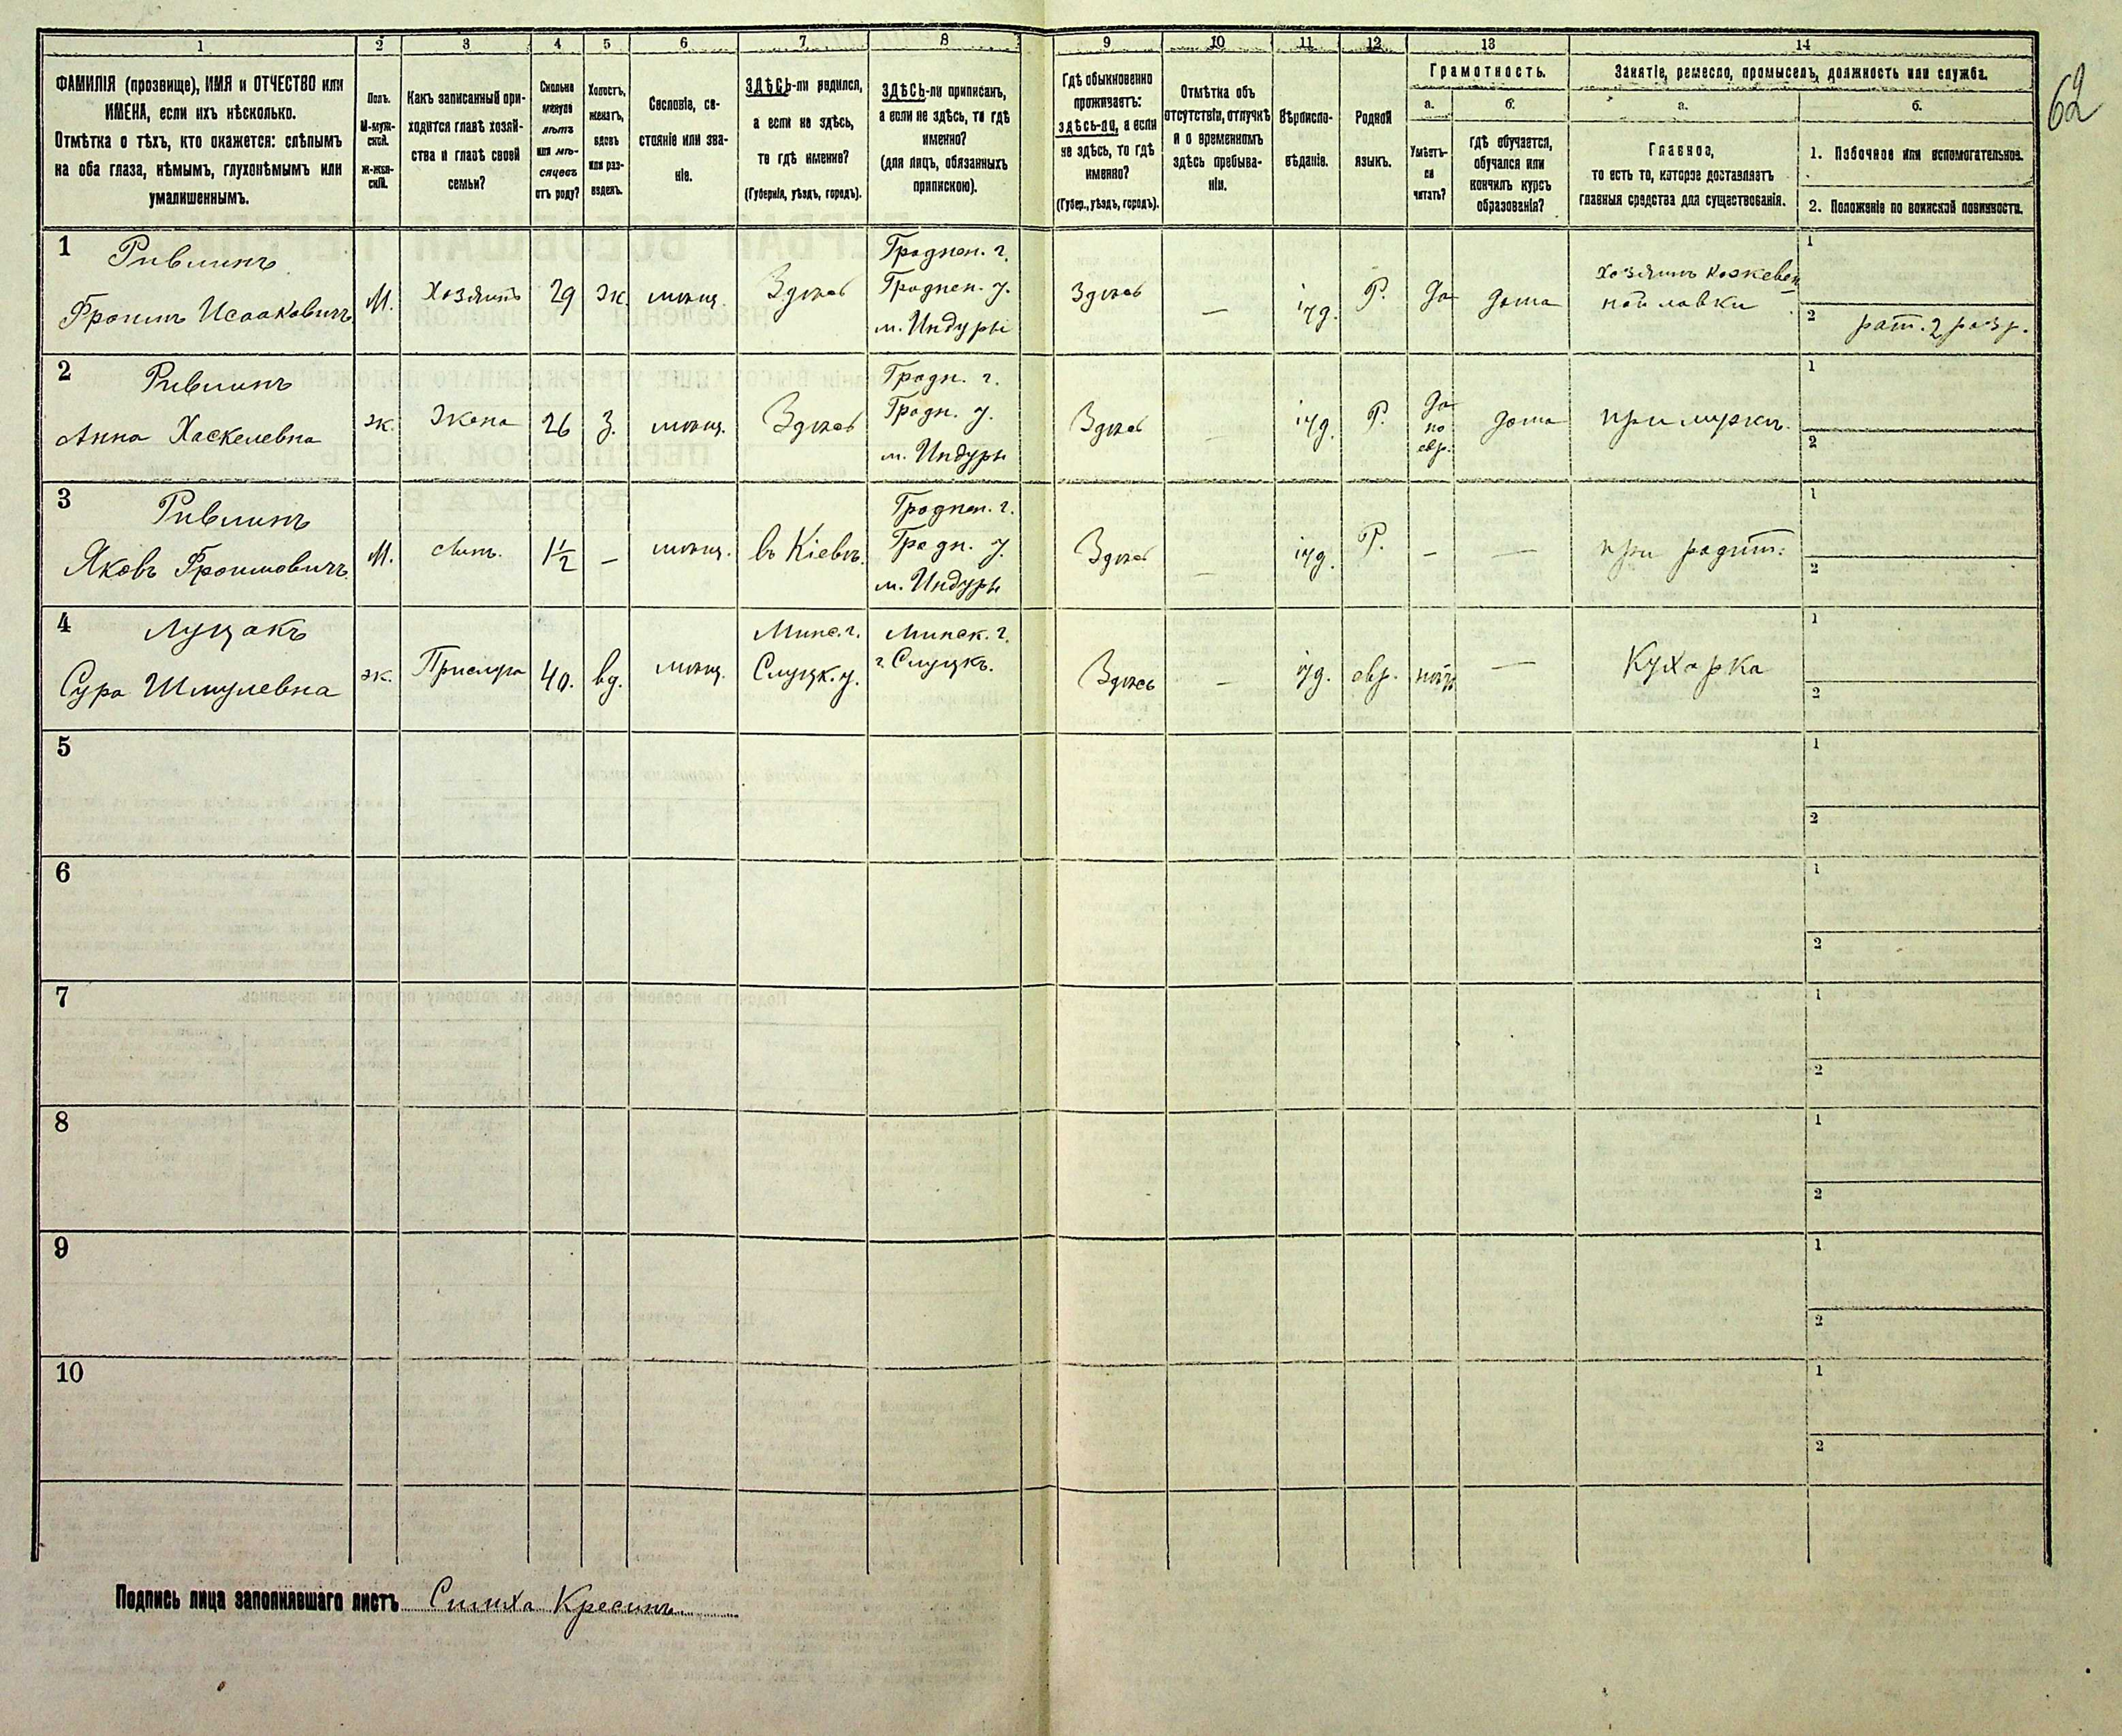 1 2 3 4 5 6 7 8 9 10 11 12 13 14
62
ФАМИЛІЯ (прозвище), ИМЯ и ОТЧЕСТВО или
ИМЕНА, если ихъ нѣсколько.
Отмѣтка о тѣхъ, кто окажется: слѣпымъ
на оба глаза, нѣмымъ, глухонѣмымъ или
умалишеннымъ.
Полъ.
М-муж-
ской.
Ж-жен-
скій.
Какъ записанный при-
ходится главѣ хозяй-
ства и главѣ своей
семьи?
Сколько
минуло
лѣтъ
или мѣ-
сяцевъ
отъ роду?
Холостъ,
женатъ,
вдовъ
или раз-
веденъ.
Сословіе, со-
стояніе или зва-
ніе.
ЗДѢСЬ-ли родился,
а если не здѣсь,
то гдѣ именно?
(Губернія, уѣздъ, городъ).
ЗДѢСЬ-ли приписанъ,
а если не здѣсь, то гдѣ
именно?
(для лицъ, обязанныхъ
припискою).
Гдѣ обыкновенно
проживаетъ:
здѣсь-ли, а если
не здѣсь, то гдѣ
именно?
(Губер., уѣздъ, городъ).
Отмѣтка объ
отсутствіи, отлучкѣ
и о временномъ
здѣсь пребыва-
ніи.
Вѣроиспо-
вѣданіе.
Родной
языкъ.
Грамотность.
а. б.
Умѣетъ-
ли
читать?
гдѣ обучается,
обучался или
кончилъ курсъ
образованія?
Занятіе, ремесло, промыселъ, должность или служба.
а. б.
Главное,
то есть то, которое доставляетъ
главныя средства для существованія.
1. Побочное или вспомогательное.
2. Положеніе по воинской повинности.
1
Ривлинъ
Фроимъ Исааковичъ
М.
Хозяинъ
29
Ж
мѣщ.
Здѣсь
Гроднен. г.
Гроднен. у.
м. Индуры
Здѣсь
—
іуд.
Р.
да
дома
хозяинъ кожевен
ной лавки
1
2
рат. 2 разр.
2
Ривлинъ
Анна Хаскелевна
ж.
Жена
26
З.
мѣщ.
Здѣсь
Гродн. г.
Гродн. у.
м. Индуры
Здѣсь
—
іуд.
Р.
да
по
евр.
дома
при мужѣ
1
2
3
Ривлинъ
Яковъ Фроимовичъ
М.
сынъ.
1½
—
мѣщ.
въ Кіевѣ
Гроднен. г.
Гродн. у.
м. Индуры
Здѣсь
—
іуд.
Р.
—
—
при родит.
1
2
4
Луцакъ
Сура Шмулевна
ж.
Прислуга
40.
вд.
мѣщ.
Минс. г.
Слуцк. у.
Минск. г.
г. Слуцкъ.
Здѣсь
—
іуд.
евр.
нѣтъ
—
Кухарка
1
2
5
1
2
6
1
2
7
1
2
8
1
2
9
1
2
10
1
2
Подпись лица заполнявшаго листъ Симха Кресинъ